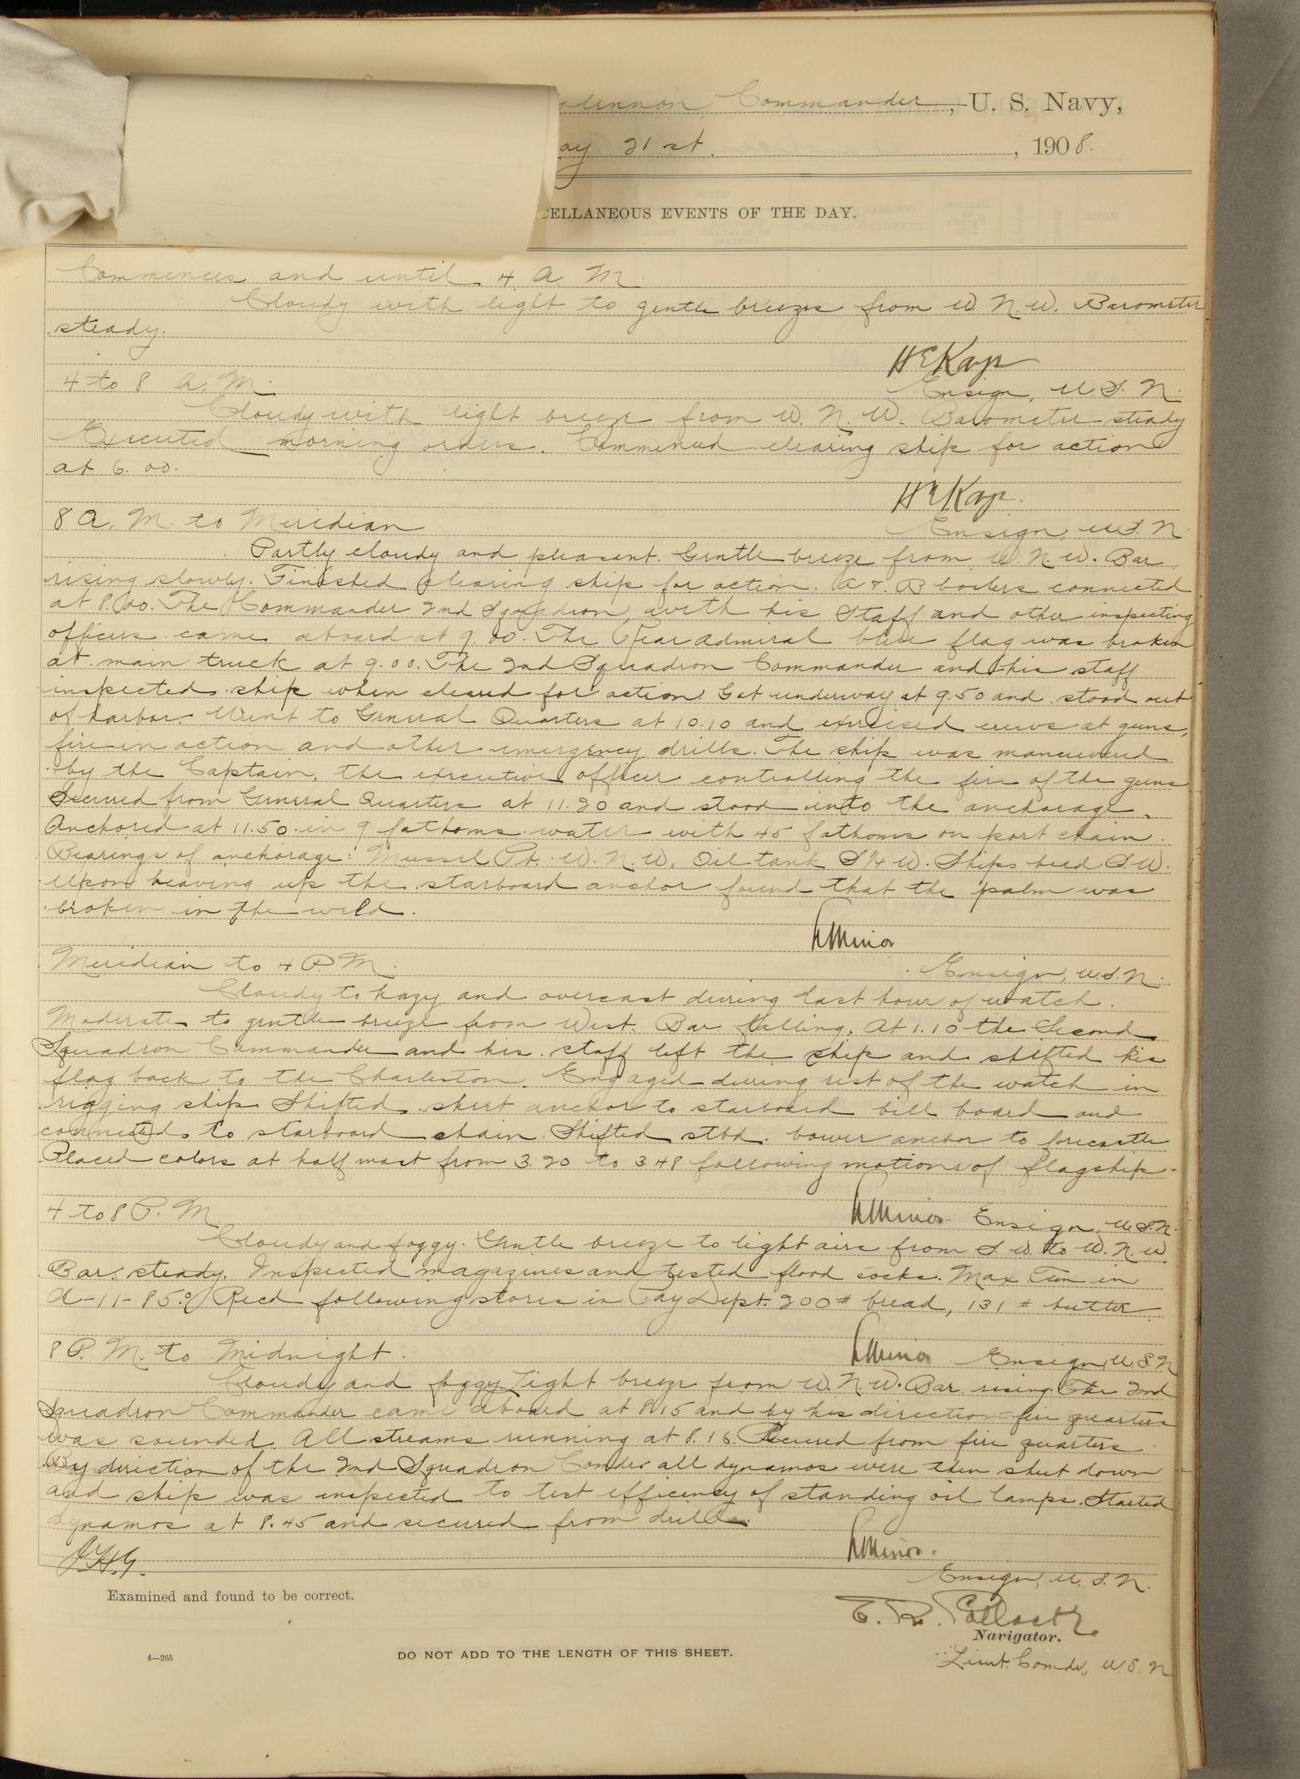 Commander, U. S. Navy,
ay 21st. , 1908.
CELLANEOUS EVENTS OF THE DAY.
Commences and until 4 A. M.
Cloudy with light to gentle breezes from W. N. W. Barometer
steady.
H E Kays
4 to 8 A. M. Ensign, U. S. N.
Cloudy with light breeze from W. N. W. Barometer steady
Executed morning orders. Commenced clearing ship for action
at 6.00.
H E Kays.
8 A. M. to Meridian Ensign, U.S.N.
Partly cloudy and pleasant. Gentle breeze from W. N. W. Bar
rising slowly. Finished clearing ship for action. A & B boilers connected
at 8.00. The Commander 2nd Squadron, with his Staff and other inspecting
officers came aboard at 9.00. The Rear Admiral blue flag was broken
at main truck at 9.00. The 2nd Squadron Commander and his staff
inspected ship when cleared for action. Got underway at 9.50 and stood out
of harbor. Went to General Quarters at 10.10 and exercised crews at guns,
fire in action and other emergency drills. The ship was maneuvered
by the Captain, the executive officer controlling the fire of the guns
Secured from General Quarters at 11.20 and stood into the anchorage.
Anchored at 11.50 in 9 fathoms water with 45 fathoms on port chain.
Bearings of anchorage: Mussel Pt. W. N. W. Oil tank S ¼ W. Ships head S.W.
Upon heaving up the starboard anchor found that the palm was
broken in the weld.
Minor
Meridian to 4 P. M. Ensign, U.S.N.
Cloudy to hazy and overcast during last hour of watch.
Moderate to gentle breeze from West. Bar falling. At 1.10 the Second
Squadron Commander and his staff left the ship and shifted his
flag back to the Charleston. Engaged during rest of the watch in
rigging ship. Shifted sheet anchor to starboard bill board and
connected to starboard chain. Shifted stbd. bower anchor to forecastle
Placed colors at half mast from 3.20 to 3.48 following motions of flagship.
4 to 8 P. M. Minor Ensign, U.S.N.
Cloudy and foggy. Gentle breeze to light airs from S. W. to W. N. W
Bar. steady. Inspected magazines and tested flood cocks. Max Tem in
A-11-85° Recd following stores in Pay Dept. 200# bread, 131# butter
8 P. M. to Midnight. Minor Ensign U S N
Cloudy and foggy. Light breeze from W. N. W. Bar rising. The 2nd
Squadron Commander came aboard at 8.15 and by his direction fire quarters
was sounded. All streams running at 8.16. Secured from fire quarters
By direction of the 2nd Squadron Comder all dynamos were then shut down
and ship was inspected to test efficiency of standing oil lamps. Started
dynamos at 8.45 and secured from drill.
J.H.G. Minor.
Ensign, U. S. N.
Examined and found to be correct.
E. R. Pollock
Navigator.
4—265 DO NOT ADD TO THE LENGTH OF THIS SHEET.
Lieut. Comdr, U. S. N